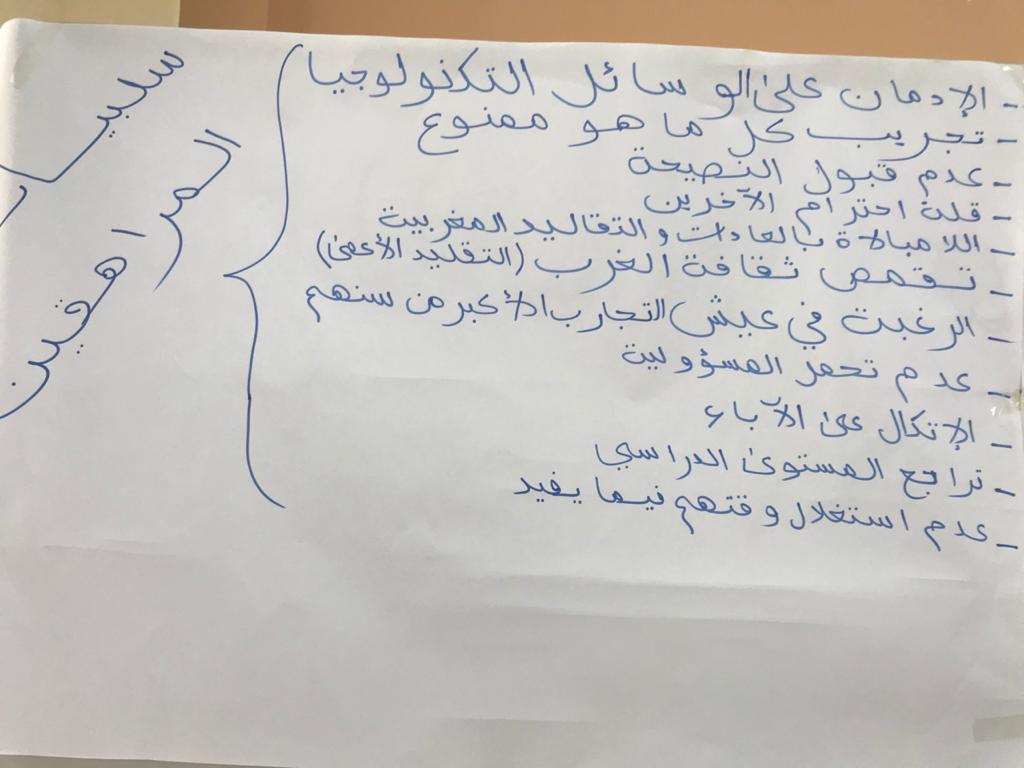 سلبيات
المراهقين
- الإدمان على الوسائل التكنولوجيا
- تجريب كل ما هو ممنوع
- عدم قبول النصيحة
- قلة احترام الآخرين
- اللامبالاة بالعادات والتقاليد المغربية
- تقمص ثقافة الغرب (التقليد الأعمى)
- الرغبة في عيش التجارب الأكبر من سنهم
- عدم تحمل المسؤولية
- الإتكال على الآباء
- تراجع المستوى الدراسي
- عدم استغلال وقتهم فيما يفيد